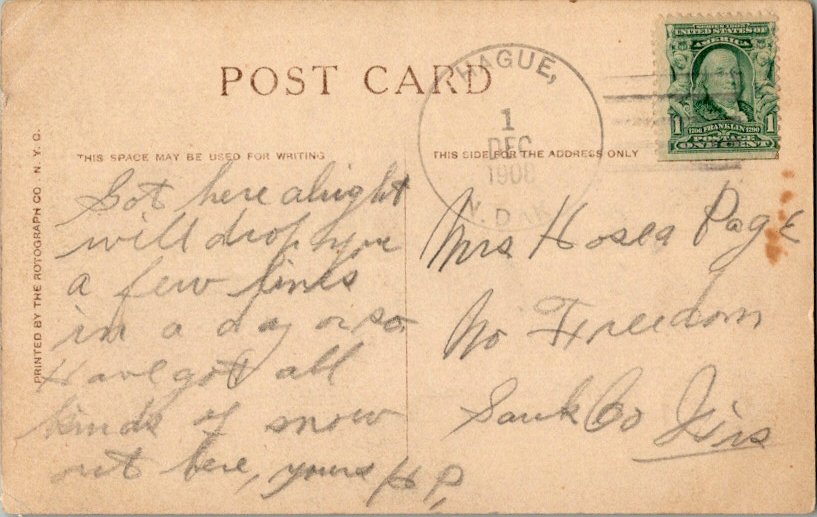 POST CARD
THIS SPACE MAY BE USED FOR WRITING
THIS SIDE FOR THE ADDRESS ONLY
PRINTED BY THE ROTOGRAPH CO. N. Y. C.
HAGUE,
1
DEC
N. DAK
SERIES 1902
UNITED STATES OF
AMERICA
1706 FRANKLIN 1790
1 1
POSTAGE
ONE CENT
Got here alright
will drop you
a few lines
in a day or so.
Have got all
kinds of snow
out here, yours H P.
Mrs Hosea Page
No Freedom
Sauk Co Wis